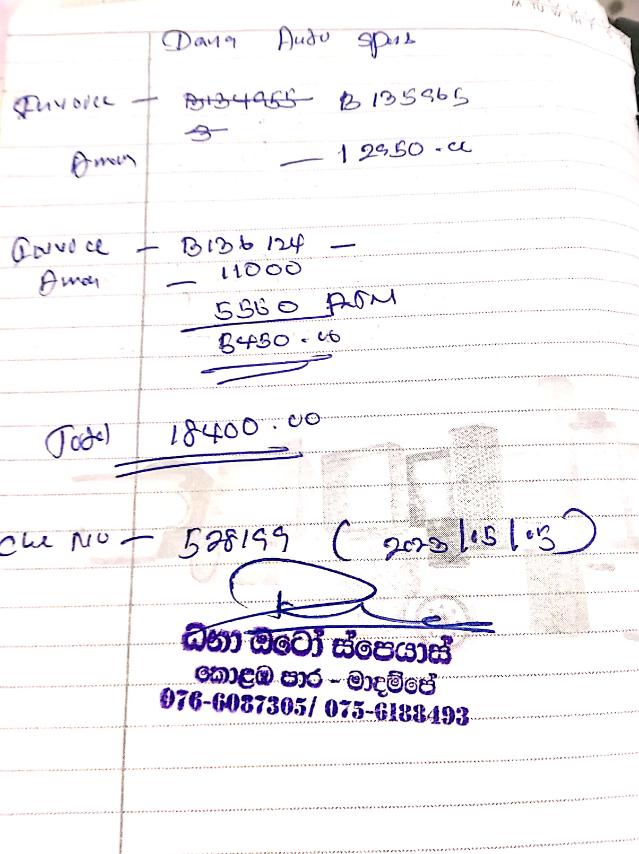 Dana Auto Spes
Invoice - B134955 B 135965
B
Amou - 12950.00
Invoice - B136124 -
Amou - 11000
5550 RTN
5450.00
Total 18400.00
Che No - 528199 (2023/05/03)
ධනා ඔටෝ ස්පෙයාස්
කොළඹ පාර - මාදම්පේ
076-6087305/ 075-6188493